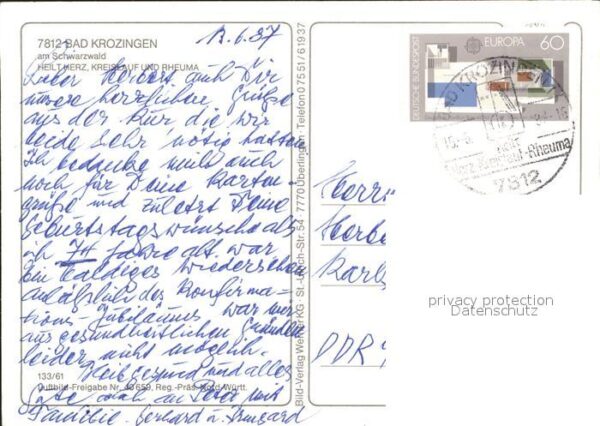 7812 BAD KROZINGEN
am Schwarzwald
HEILT HERZ, KREISLAUF UND RHEUMA
13.6.87
Lieber Herbert auch Dir
unsere herzlichen Grüße
aus der Kur die wir
beide sehr nötig hatten
Ich bedanke mich auch
noch für Deine Karten-
grüße und zuletzt Deine
Geburtstagswünsche als
ich 74 Jahre alt war
Ein baldiges Wiedersehen
anläßlich des Konfirma-
tions-Jubiläums, war mir
aus gesundheitlichen Gründen
leider nicht möglich.
Bleib gesund und alles
Gute auch an mit
Familie. Gerhard u. Irmgard
133/61
Luftbild-Freigabe Nr. 40 659, Reg.-Präs. Nord-Württ.
Bild-Verlag Werner KG · St.-Ulrich-Str. 54 · 7770 Überlingen · Telefon 0 75 51 / 6 19 37
DEUTSCHE BUNDESPOST
EUROPA 60
BAD KROZINGEN
Herz-Kreislauf-Rheuma
7812
Herrn
Herbe
Karl
DDR
privacy protection
Datenschutz